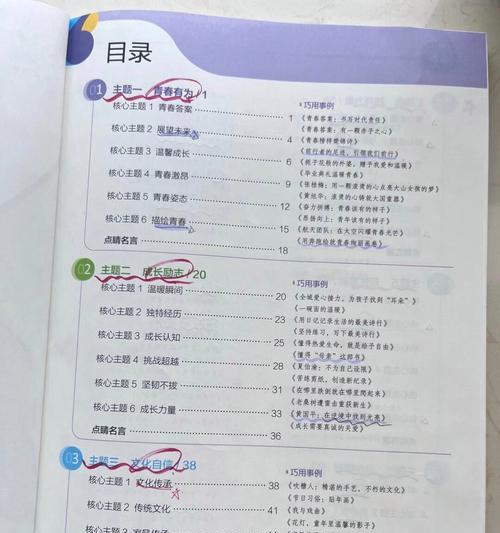 目录
01 主题一 青春有为 / 1
核心主题 1 青春答案 1
核心主题 2 展望未来 4
核心主题 3 温馨成长 6
核心主题 4 青春激昂 9
核心主题 5 青春姿态 12
核心主题 6 描绘青春 15
点睛名言 18
巧用事例
《青春答案：书写时代责任》
《青春答案：有一颗赤子之心》
《青春榜样楚锦诗》
《前行者的足迹，引领我们前行》
《栀子花般的外婆，赠予我爱和温暖》
《毕业典礼温暖青春》
《张桂梅：用一颗滚烫的心点亮大山女孩的梦》
《黄旭华：滚烫的心铸就大国重器》
《奋力拼搏：青春该有的样子》
《昂扬向上：青年该有的样子》
《航天团队：在太空闪耀青春光芒》
《用奔跑绘就青春绚丽画卷》
02 主题二 成长励志 / 20
核心主题 1 温暖瞬间 20
核心主题 2 独特经历 23
核心主题 3 成长认知 25
核心主题 4 挑战超越 28
核心主题 5 坚韧不拔 31
核心主题 6 成长力量 33
点睛名言 36
巧用事例
《全城爱心接力，为孩子找到“耳朵”》
《一碗面的温暖》
《用日记记录生活的最美诗行》
《坚持练习，写下最美诗行》
《懂得热爱生命，就是给予自由》
《懂得“母亲”这部书》
《夏伯渝：不为自己设限》
《苦练剪纸，创造新纪录》
《在哪里跌倒就在哪里爬起来》
《老桑树遭雷击重获新生》
《黄国平：在逆境中找到光亮》
《成长需要真诚的关爱》
03 主题三 文化自信 / 38
核心主题 1 文化传承 38
核心主题 2 传统文化 41
巧用事例
《吹糖人：精湛的手艺，不朽的文化》
《节日习俗：贴年画》
《我与戏曲》
《花灯，童年里温馨的影子》